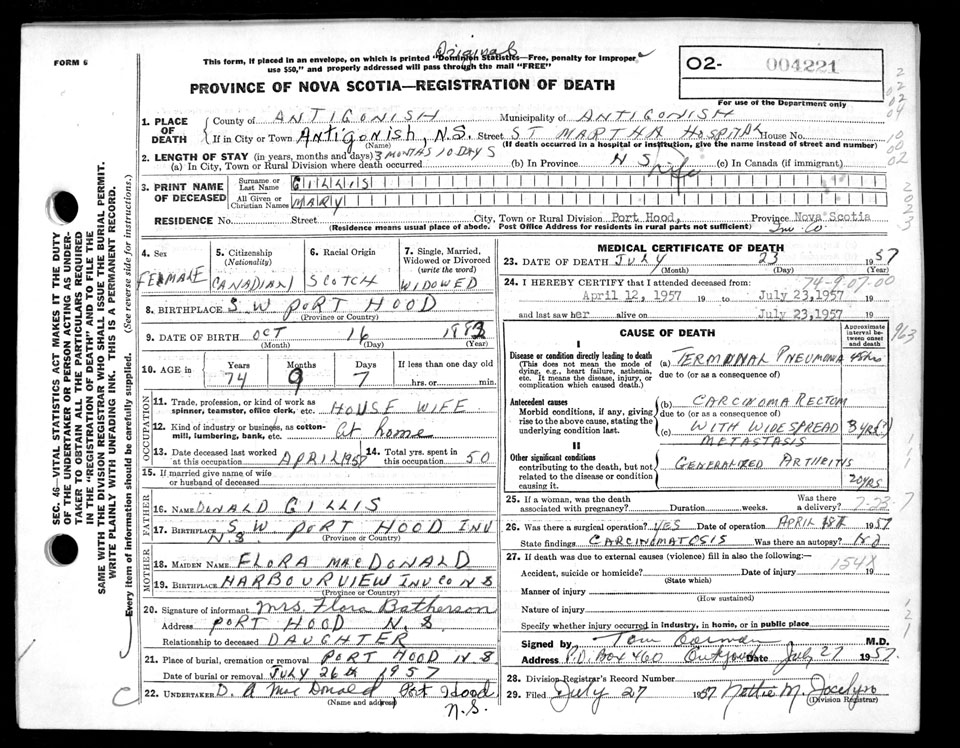 Original
FORM 6
This form, if placed in an envelope, on which is printed "Dominion Statistics—Free, penalty for improper use $50," and properly addressed will pass through the mail "FREE"
O2- 004221
For use of the Department only
PROVINCE OF NOVA SCOTIA—REGISTRATION OF DEATH
1. PLACE OF DEATH County of ANTIGONISH Municipality of ANTIGONISH
If in City or Town Antigonish, N.S. Street ST MARTHA HOSPITAL House No.
(Name) (If death occurred in a hospital or institution, give the name instead of street and number)
2. LENGTH OF STAY (in years, months and days) 3 MONTHS 10 DAYS
(a) In City, Town or Rural Division where death occurred (b) In Province N S life (c) In Canada (if immigrant)
3. PRINT NAME OF DECEASED Surname or Last Name GILLIS
All Given or Christian Names MARY
RESIDENCE No. Street City, Town or Rural Division Port Hood, Province Nova Scotia
(Residence means usual place of abode. Post Office Address for residents in rural parts not sufficient) Inv. Co.
4. Sex FEMALE
5. Citizenship (Nationality) CANADIAN
6. Racial Origin SCOTCH
7. Single, Married, Widowed or Divorced (write the word) WIDOWED
8. BIRTHPLACE S.W PORT HOOD
(Province or Country)
9. DATE OF BIRTH OCT 16 1882
(Month) (Day) (Year)
10. AGE IN Years 74 Months 9 Days 7 If less than one day old hrs. or min.
OCCUPATION
11. Trade, profession, or kind of work as spinner, teamster, office clerk, etc. HOUSE WIFE
12. Kind of industry or business, as cotton-mill, lumbering, bank, etc. at home
13. Date deceased last worked at this occupation APRIL 1957 14. Total yrs. spent in this occupation 50
15. If married give name of wife or husband of deceased
FATHER
16. NAME DONALD GILLIS
17. BIRTHPLACE S.W PORT HOOD INV
N.S. (Province or Country)
MOTHER
18. MAIDEN NAME FLORA MACDONALD
19. BIRTHPLACE HARBOURVIEW INV CO N S
(Province or Country)
20. Signature of informant Mrs. Flora Batherson
Address PORT HOOD N. S.
Relationship to deceased DAUGHTER
21. Place of burial, cremation or removal PORT HOOD N S
Date of burial or removal JULY 26th 1957
22. UNDERTAKER D. A MacDonald Port Hood
(Name and address) N.S.
MEDICAL CERTIFICATE OF DEATH
23. DATE OF DEATH JULY 23 1957
(Month) (Day) (Year)
24. I HEREBY CERTIFY that I attended deceased from: 74-9-07.00
April 12, 1957 19 to July 23, 1957 19
and last saw her alive on July 23, 1957
CAUSE OF DEATH
Approximate interval between onset and death
I
Disease or condition directly leading to death (This does not mean the mode of dying, e.g., heart failure, asthenia, etc. It means the disease, injury, or complication which caused death.)
(a) TERMINAL PNEUMONIA
due to (or as a consequence of)
Antecedent causes
Morbid conditions, if any, giving rise to the above cause, stating the underlying condition last.
(b) CARCINOMA RECTUM
due to (or as a consequence of)
(c) WITH WIDESPREAD METASTASIS 3 yrs
II
Other significant conditions contributing to the death, but not related to the disease or condition causing it.
GENERALIZED ARTHRITIS
20 YRS
25. If a woman, was the death associated with pregnancy? Duration weeks. Was there a delivery? 7-23-7
26. Was there a surgical operation? YES Date of operation APRIL 18th 1957
State findings CARCINOMATOSIS Was there an autopsy? No
27. If death was due to external causes (violence) fill in also the following:—
154X
Accident, suicide or homicide? Date of injury 19
(State which)
Manner of injury
(How sustained)
Nature of injury
Specify whether injury occurred in industry, in home, or in public place
Signed by Tom Gorman M.D.
Address P.O. Box 460 Antigonish Date July 27 1957.
28. Division Registrar's Record Number
29. Filed July 27 1957 Nettie M. Jocelyn
(Division Registrar)
SEC. 46—VITAL STATISTICS ACT MAKES IT THE DUTY OF THE UNDERTAKER OR PERSON ACTING AS UNDERTAKER TO OBTAIN ALL THE PARTICULARS REQUIRED IN THE "REGISTRATION OF DEATH" AND TO FILE THE SAME WITH THE DIVISION REGISTRAR WHO SHALL ISSUE THE BURIAL PERMIT. WRITE PLAINLY WITH UNFADING INK. THIS IS A PERMANENT RECORD.
Every item of information should be carefully supplied. (See reverse side for instructions.)